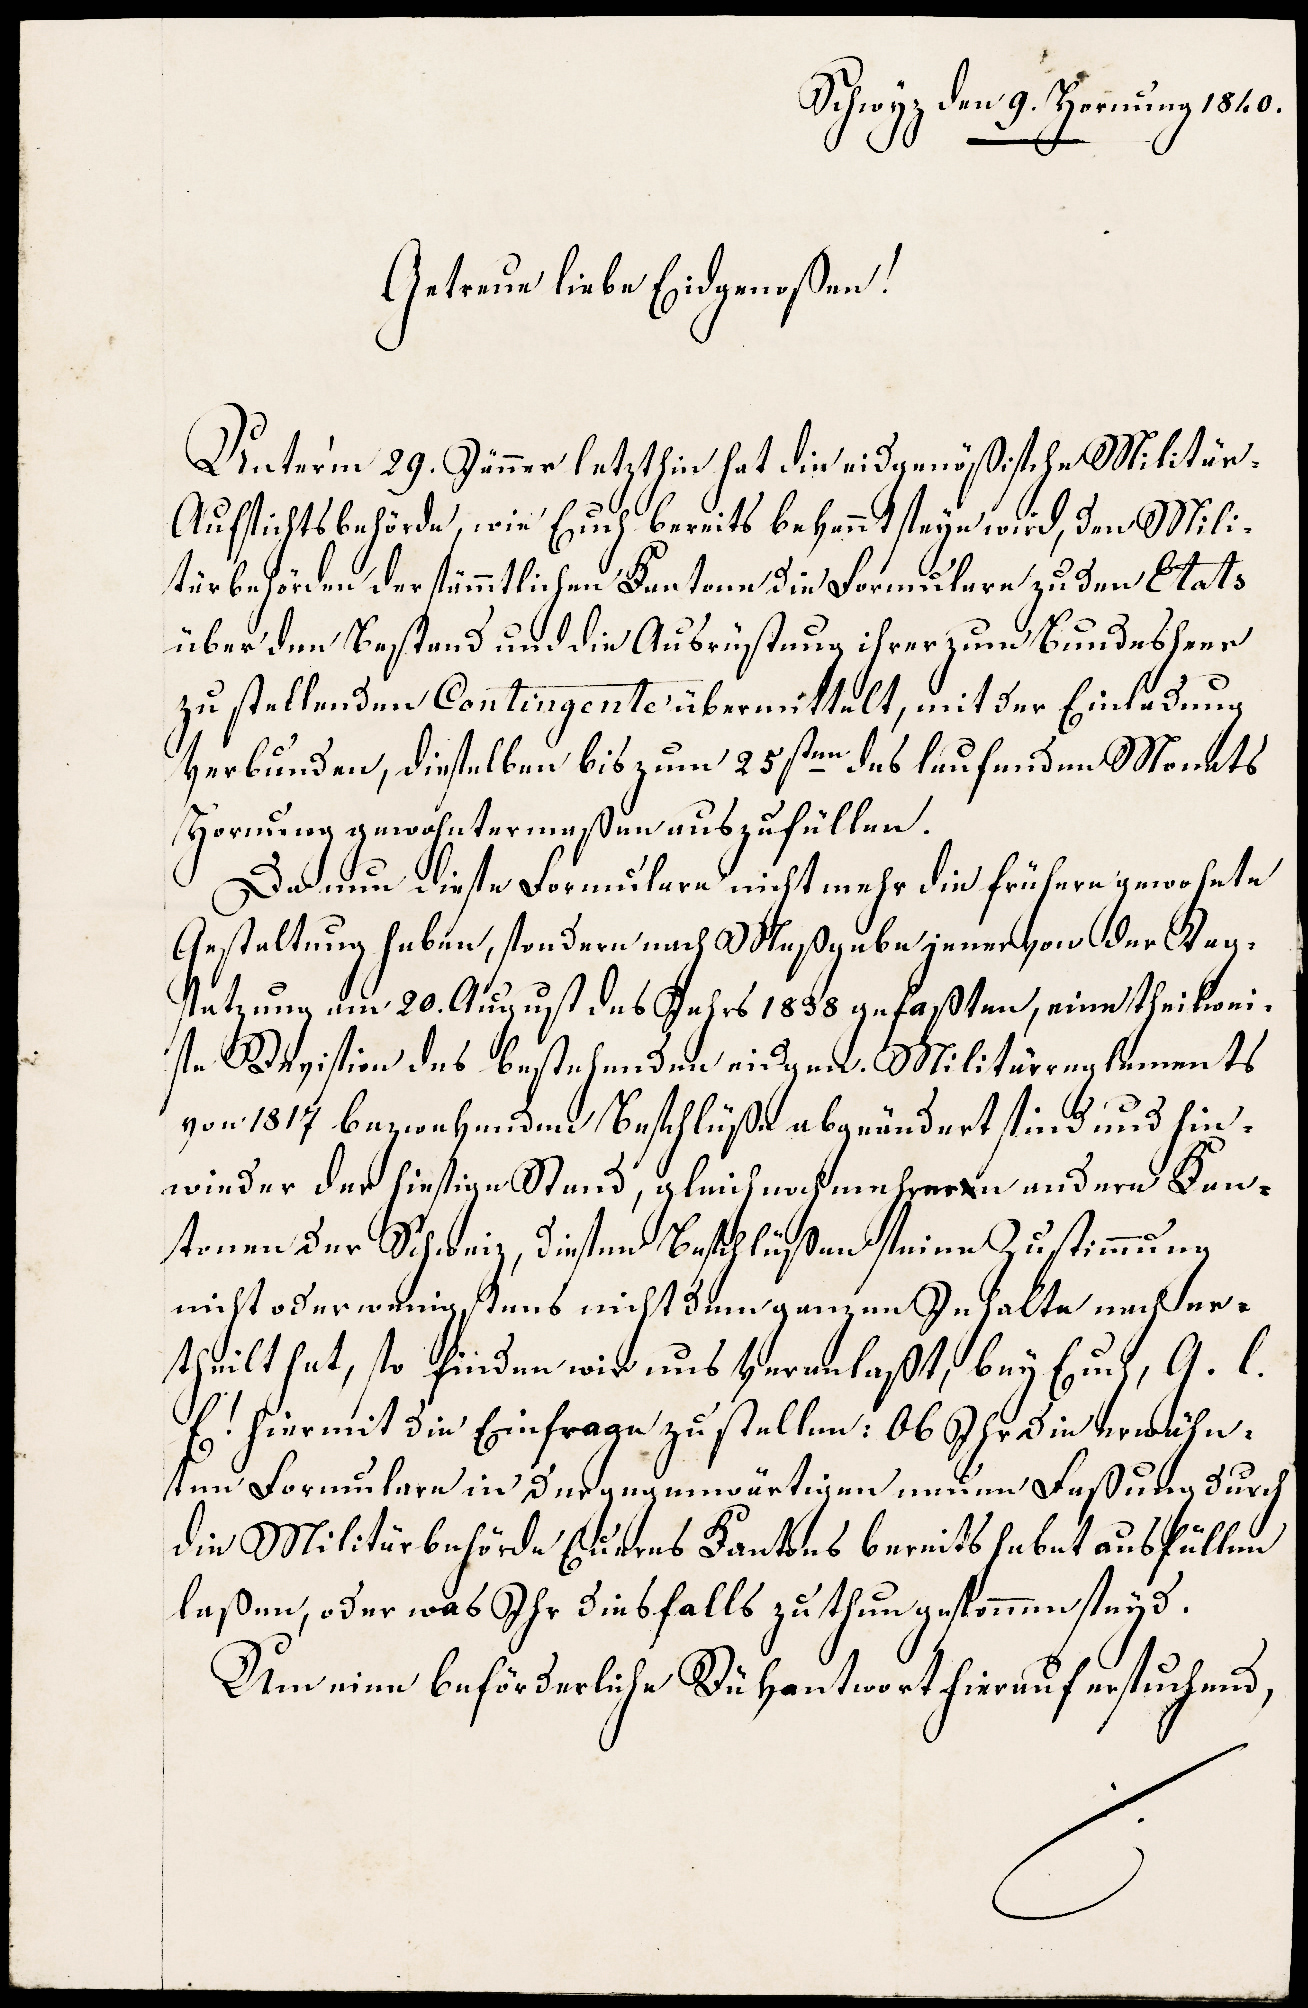 Schwÿz den 9. Hornung 1840.
Getreue liebe Eidgenoßen!
Unterm 29. Jänner letzthin hat die eidgenößische Militär-
Aufsichtsbehörde, wie Euch bereits bekannt seyn wird, den Mili-
tärbehörden der sämmtlichen Kantone die Formulare zu den Etats
über den Bestand und die Ausrüstung ihrer zum Bundesheer
zu stellenden Contingente übermittelt, mit der Einladung
verbunden, dieselben bis zum 25sten des laufenden Monats
Hornung gewohntermaßen auszufüllen.
Da nun diese Formulare nicht mehr die frühere gewohnte
Gestaltung haben, sondern nach Maßgabe jener von der Tag-
satzung am 20. August des Jahrs 1838 gefaßten, eine theilwei-
se Revision des bestehenden eidgen. Militärreglements
von 1817 bezwekenden Beschlüße abgeändert sind und hin-
wieder der hiesige Stand, gleich noch mehreren andern Kan-
tonen der Schweiz, diesen Beschlüßen seine Zustimmung
nicht oder wenigstens nicht dem ganzen Inhalte nach er-
theilt hat, so finden wir uns veranlaßt, bey Euch, G. l.
E! hiermit die Einfrage zu stellen: Ob Ihr die erwähn-
ten Formulare in der gegenwärtigen neuen Faßung durch
die Militärbehörde Eueres Kantons bereits habet ausfüllen
laßen, oder was Ihr diesfalls zu thun gesonnen seyd.
Um eine beförderliche Rükantwort hierauf ersuchend,